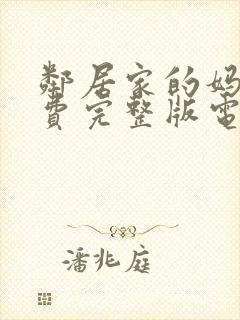 鄰居家的妈
費完整版電
潘兆庭